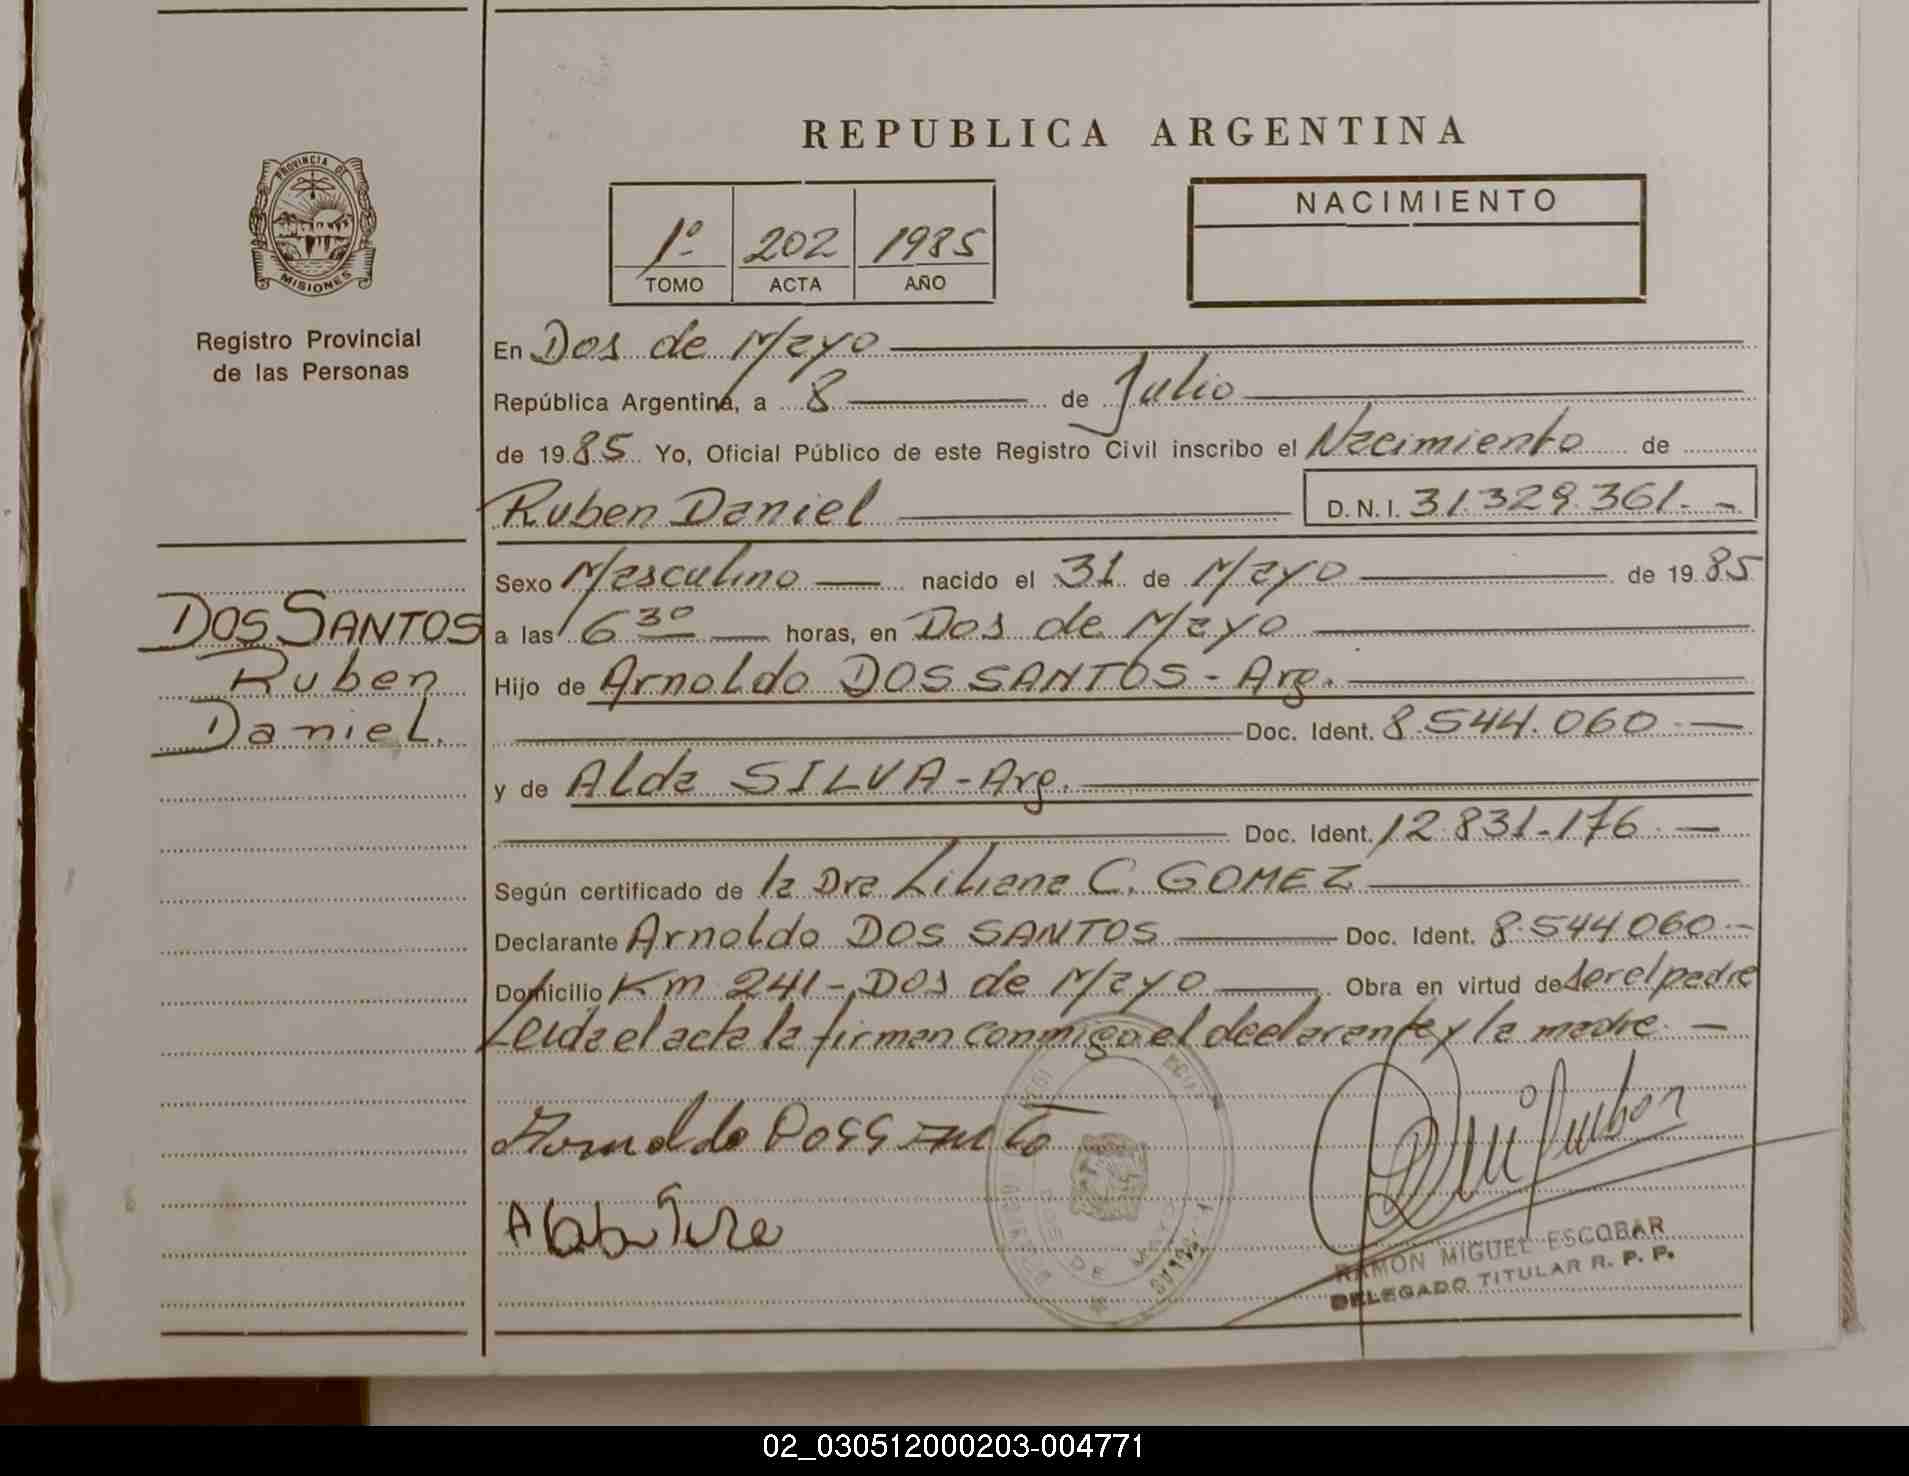 REPUBLICA ARGENTINA
PROVINCIA DE
MISIONES
Registro Provincial
de las Personas
1º 202 1985
TOMO ACTA AÑO
NACIMIENTO
En Dos de Mayo
República Argentina, a 8 de Julio
de 1985 Yo, Oficial Público de este Registro Civil inscribo el Nacimiento de
Ruben Daniel D.N.I. 31.329.361.-
DOS SANTOS
Ruben
Daniel.
Sexo Masculino nacido el 31 de Mayo de 1985
a las 6 30 horas, en Dos de Mayo
Hijo de Arnoldo DOS SANTOS - Arg.
Doc. Ident. 8.544.060.-
y de Alda SILVA - Arg.
Doc. Ident. 12.831.176.-
Según certificado de la Dra Liliana C. GOMEZ
Declarante Arnoldo DOS SANTOS Doc. Ident. 8.544.060.-
Domicilio Km 241 - Dos de Mayo Obra en virtud de ser el padre
Leida el acta la firman conmigo el declarante y la madre. -
DOS DE MAYO
RAMON MIGUEL ESCOBAR
DELEGADO TITULAR R. P. P.
02_030512000203-004771